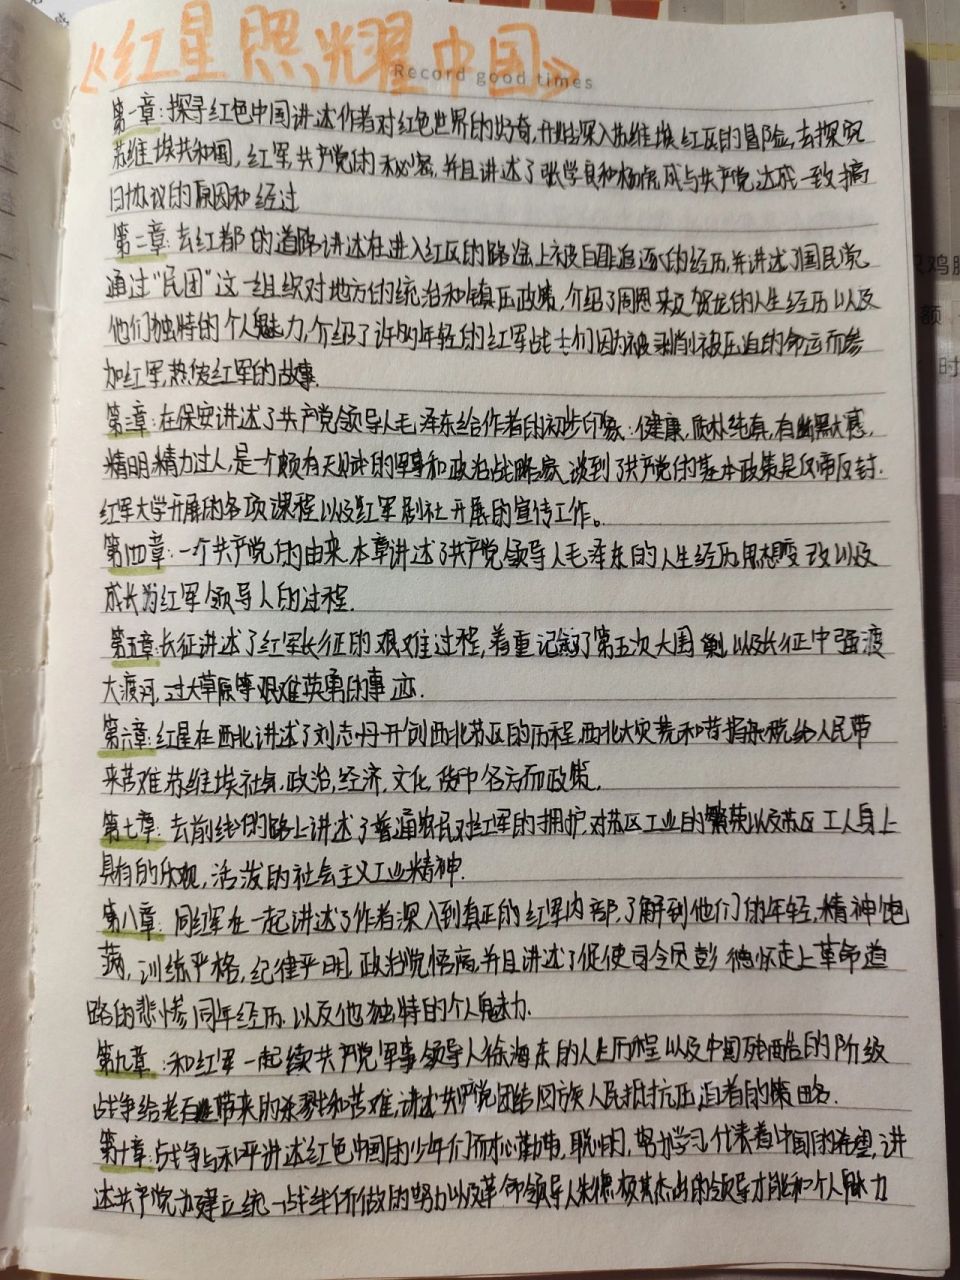 《红星照耀中国》
Record good times
第一章:探寻红色中国讲述作者对红色世界的好奇,开始深入苏维埃红区的冒险,去探究
苏维埃共和国,红军,共产党的秘密,并且讲述了张学良和杨虎成与共产党达成一致搞
日协议的原因和经过
第二章:去红都的道路讲述在进入红区的路途上被白匪追逐的经历,并讲述了国民党
通过“民团”这一组织对地方的统治和镇压政策,介绍了周恩来及贺龙的人生经历以及
他们独特的个人魅力,介绍了许多年轻的红军战士们因为被剥削被压迫的命运而参
加红军,热爱红军的故事.
第三章:在保安讲述了共产党领导人毛泽东给作者的初步印象:健康,质朴纯真,有幽默感,
精明,精力过人,是一个颇有天赋的军事和政治战略家,谈到了共产党的基本政策是反帝反封.
红军大学开展的各项课程以及红军剧社开展的宣传工作。
第四章:一个共产党的由来本章讲述了共产党领导人毛泽东的人生经历思想变改以及
成长为红军领导人的过程.
第五章:长征讲述了红军长征的艰难过程,着重记叙了第五次大围剿以及长征中强渡
大渡河,过大草原等艰难英勇的事迹.
第六章:红星在西北讲述了刘志丹开创西北苏区的历程,西北大灾荒和苛捐杂税给人民带
来苦难苏维埃社会,政治,经济,文化,货币各方面政策.
第七章:去前线的路上讲述了普通农民对红军的拥护,对苏区工业的繁荣以及苏区工人身上
具有的乐观,活泼的社会主义工业精神.
第八章:同红军在一起讲述了作者深入到真正的红军内部,了解到他们的年轻,精神饱
满,训练严格,纪律严明,政治觉悟高,并且讲述了促使司令员彭德怀走上革命道
路的悲惨同年经历.以及他独特的个人魅力.
第九章:和红军一起续共产党军事领导人徐海东的人生历程以及中国残酷的阶级
战争给老百姓带来的杀戮和苦难,讲述共产党团结回族人民抵抗压迫者的策略.
第十章:战争与和平讲述红色中国的少年们耐心勤带,聪明,努力学习代表着中国的希望,讲
述共产党为建立统一战线所做的努力以及革命领导人朱德极其杰出的领导才能和个人魅力